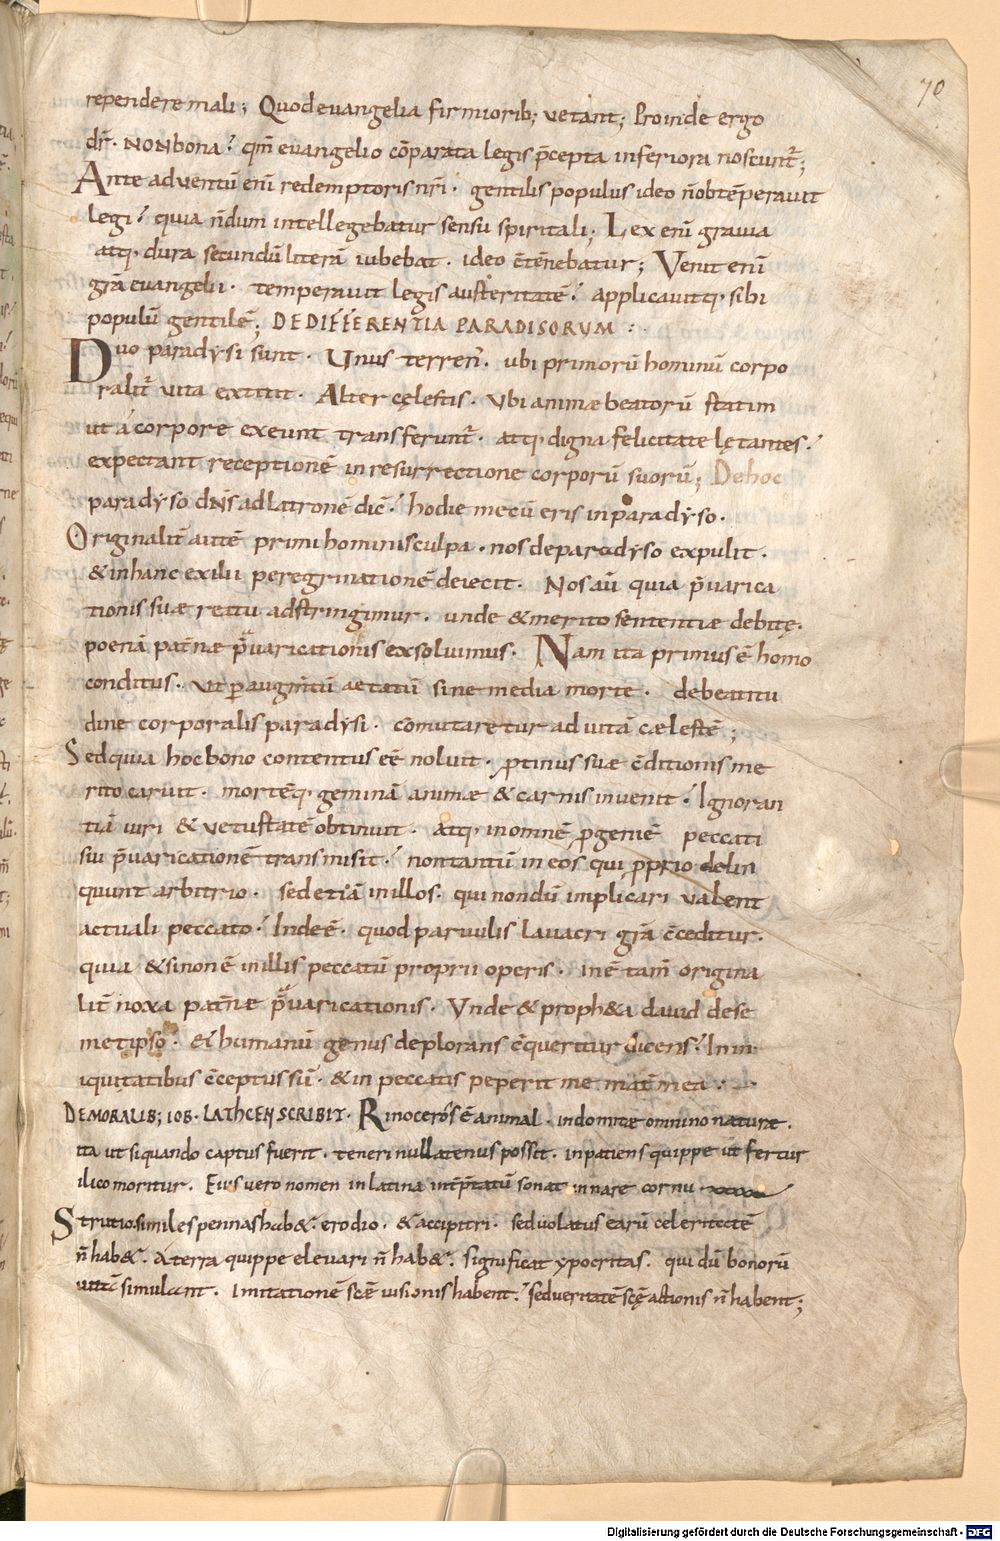 70
rependere mali; Quod evangelia firmiorib; vetant; Proinde ergo
dr̄· NON bona? qm̄ evangelio cōparata legis p̄cepta inferiora noscunt̄;
Ante adventū enī redemptoris nr̄i· gentilis populus ideo n̄ obtēperavit
legi? quia n̄dum intellegebatur sensu spiritali; Lex enī gravia
atq· dura secundū literā iubebat· ideo c̄tēnebatur; Venit enī
gr̄a evangelii· temperavit legis austeritatē? applicavitq· sibi
populū gentilē; DE DIFFERENTIA PARADISORUM :·
Duo paradysi sunt· Unus terren'· ubi primorū hominū corpo
ralit̄ vita extitit· Alter cęlestis· Ubi animæ beatorū statim
ut á corpore exeunt transferunt̄· atq· digna felicitate lętantes?
expectant receptionē in resurrectione corporū suorū; De hoc
paradyso dn̄s ad latronē dic̄? hodie mecū eris in paradyso·
Originalit̄ autē primi hominis culpa· nos de paradyso expulit·
& in hanc exilii peregrinationē deiecit· Nos aū quia p̄varica
tionis suæ reatu adstringimur· unde & merito sententiæ debitę·
poenā pat̄næ p̄varicationis exsolvimus· Nam ita primus ē homo
conditus· ut p augm̄tū aetatū sine media morte· de beatitu
dine corporalis paradysi· cōmutaretur ad vitā cælestē;
Sed quia hoc bono contentus eē noluit· ꝓtinus suæ c̄ditionis me
rito caruit· mortēq· geminā animæ & carnis invenit? Ignoran
tiā iuri & vetustatē obtinuit· atq· in omnē ꝓgeniē peccati
sui p̄varicationē transmisit? non tantū in eos qui ꝓprio delin
quunt arbitrio· sed etiā in illos· qui nondū implicari valent
actuali peccato? Inde ē· quod parvulis lavacri gr̄a c̄ceditur·
quia & si non ē in illis peccatū proprii operis· inē tam̄ origina
lit̄ noxa pat̄næ p̄varicationis· Unde & proph&a david de se
metipso· et humanū genus deplorans c̄queritur dicens? In in
iquitatibus c̄ceptus sū· & in peccatis peperit me mat̄ mea :·
DE MORALIB; IOB· LATHCEN SCRIBIT· Rinoceros ē animal· indomitæ omnino naturæ·
ita ut si quando captus fuerit· teneri nullatenus possit· inpatiens quippe ut fertur
ilico moritur· Eius vero nomen in latina int̄p̄tatū sonat in nare cornu·
Strutio similes pennas hab&· erodio· & accipitri· sed volatus earū celeritatē
n̄ hab&· A terra quippe elevari n̄ hab&· significat ypocritas· qui dū bonorū
vitā simulant· Imitationē scē visionis habent? sed veritatē scę actionis n̄ habent;
Digitalisierung gefördert durch die Deutsche Forschungsgemeinschaft - DFG